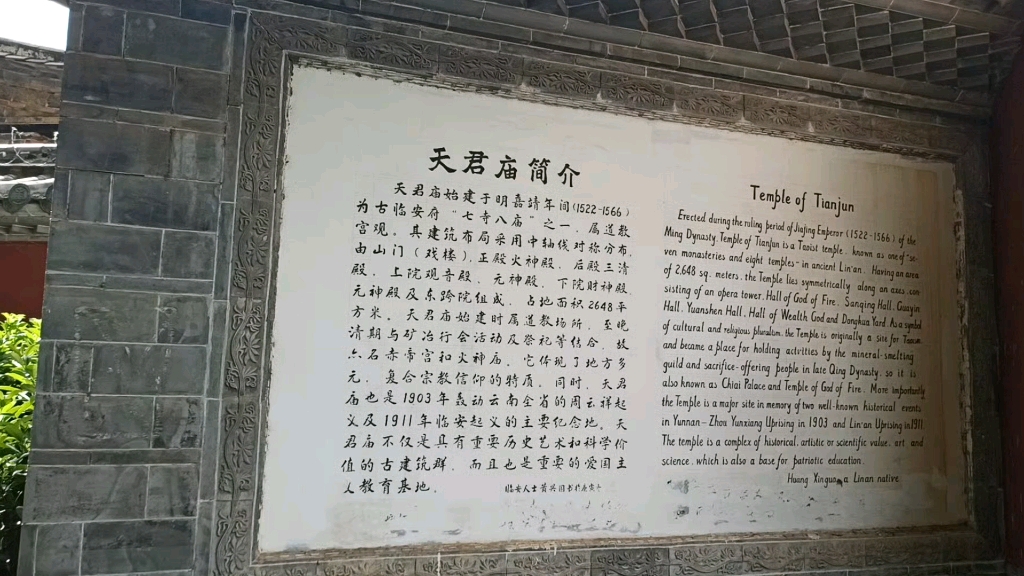 天君庙简介
天君庙始建于明嘉靖年间(1522-1566)
为古临安府“七寺八庙”之一，属道教
宫观。其建筑布局采用中轴线对称分布，
由山门（戏楼），正殿火神殿，后殿三清
殿，上院观音殿，元神殿、下院财神殿、
元神殿及东跨院组成，占地面积2648平
方米。天君庙始建时属道教场所，至晚
清期与矿冶行会活动及祭祀等结合，故
六名赤帝宫和火神庙。它体现了地方多
元，复合宗教信仰的特质。同时，天君
庙也是1903年轰动云南全省的周云祥起
义及1911年临安起义的主要纪念地。天
君庙不仅是具有重要历史艺术和科学价
值的古建筑群，而且也是重要的爱国主
义教育基地。
临安人士黄兴国书
Temple of Tianjun
Erected during the ruling period of Jiajing Emperor (1522-1566) of the
Ming Dynasty, Temple of Tianjun is a Taoist temple, known as one of "se-
ven monasteries and eight temples" in ancient Lin'an. Having an area
of 2,648 sq. meters, the Temple lies symmetrically along an axes con-
sisting of an opera tower, Hall of God of Fire, Sanqing Hall, Guanyin
Hall, Yuanshen Hall, Hall of Wealth God and Donghua Yard. As a symbol
of cultural and religious pluralism, the Temple is originally a site for Taoism
and became a place for holding activities by the mineral-smelting
guild and sacrifice-offering people in late Qing Dynasty, so it is
also known as Chidi Palace and Temple of God of Fire. More importantly,
the Temple is a major site in memory of two well-known historical events
in Yunnan-Zhou Yunxiang Uprising in 1903 and Lin'an Uprising in 1911.
The temple is a complex of historical, artistic or scientific value, art and
science, which is also a base for patriotic education.
Huang Xinguo, a Linan native